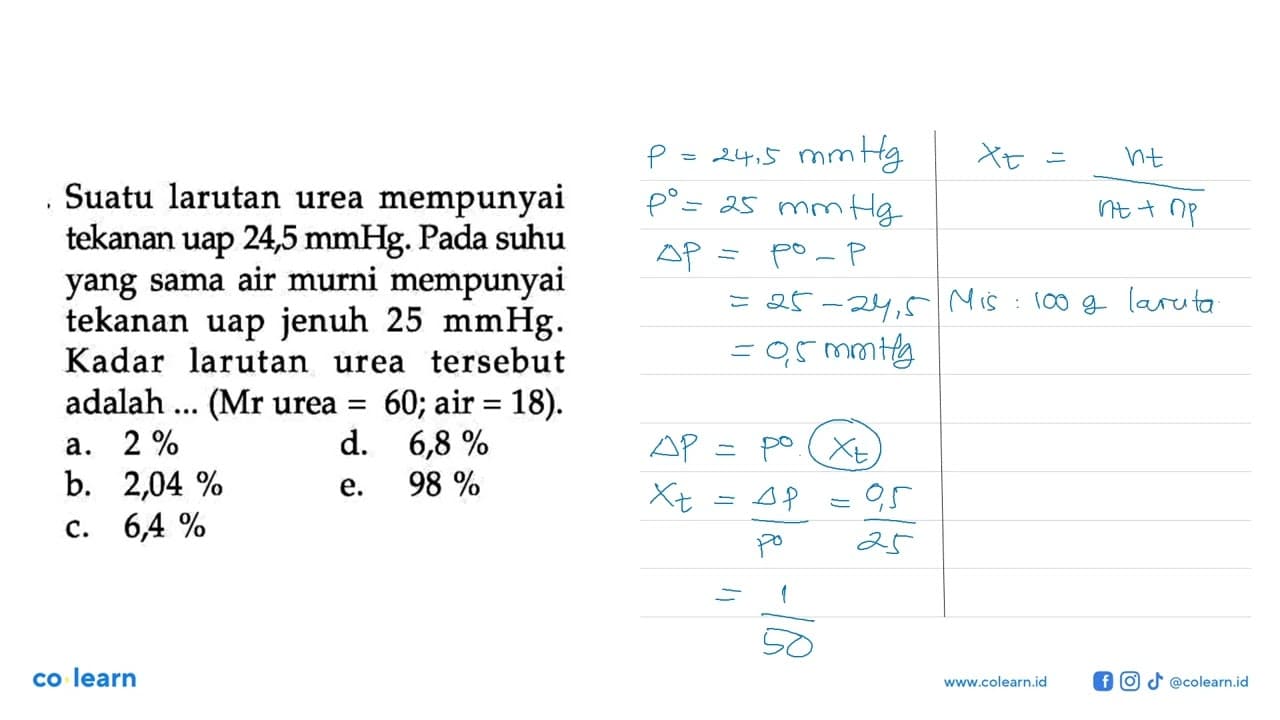 . Suatu larutan urea mempunyai
tekanan uap 24,5 mmHg. Pada suhu
yang sama air murni mempunyai
tekanan uap jenuh 25 mmHg.
Kadar larutan urea tersebut
adalah ... (Mr urea = 60; air = 18).
a. 2 %
b. 2,04 %
c. 6,4 %
d. 6,8 %
e. 98 %
P = 24,5 mmHg
P° = 25 mmHg
ΔP = P° - P
= 25 - 24,5
= 0,5 mmHg
ΔP = P° . Xt
Xt = ΔP/P° = 0,5/25
= 1/50
Xt = nt/nt + np
Mis : 100 g laruta
co learn
www.colearn.id
@colearn.id